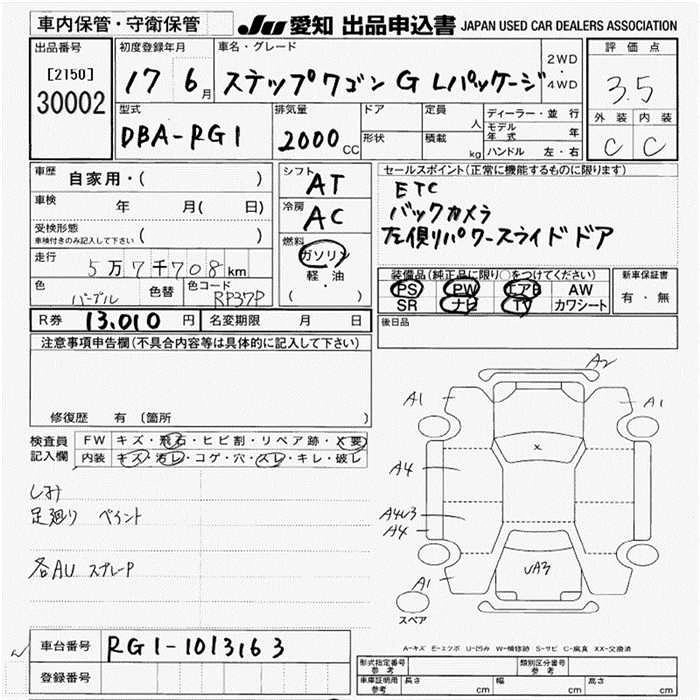 車内保管・守衛保管 JU 愛知 出品申込書 JAPAN USED CAR DEALERS ASSOCIATION
出品番号 初度登録年月 車名・グレード 2WD・4WD 評価点
[2150] 17 6月 ステップワゴン G Lパッケージ 3.5
30002
型式 排気量 ドア 定員 人 ディーラー・並行 外装 内装
DBA-RG1 2000cc 形状 積載 kg モデル年式 年 C C
ハンドル 左・右
車歴 自家用・( ) シフト AT セールスポイント(正常に機能するものに限ります)
車検 年 月( 日) 冷房 AC ETC
バックカメラ
受検形態 ( ) 左側リパワースライドドア
車検付きのみ記入して下さい
燃料 ガソリン
走行 5万7千708km 軽・油
( ・ )
色 パープル 色替 色コード RP37P
装備品(純正品に限り○をつけてください) 新車保証書
PS PW エアB AW 有・無
SR ナビ TV カワシート
R券 13,010 円 名変期限 月 日 後日品
注意事項申告欄(不具合内容等は具体的に記入して下さい)
修復歴 有(箇所 )
検査員 FW キズ・飛石・ヒビ割・リペア跡・X要
記入欄 内装 キズ・汚レ・コゲ・穴・スレ・キレ・破レ
しみ
足廻り ペイント
各AU スプレーP
A2
A1 A1
X
A4
A4U3
A4
UA3
A1
スペア
A-キズ E-エクボ U-凹み W-補修跡 S-サビ C-腐蝕 XX-交換済
車台番号 RG1-1013163
登録番号
形式指定番号 参考 類別区分番号 参考
車庫証明用 参考 長さ cm 幅 cm 高さ cm